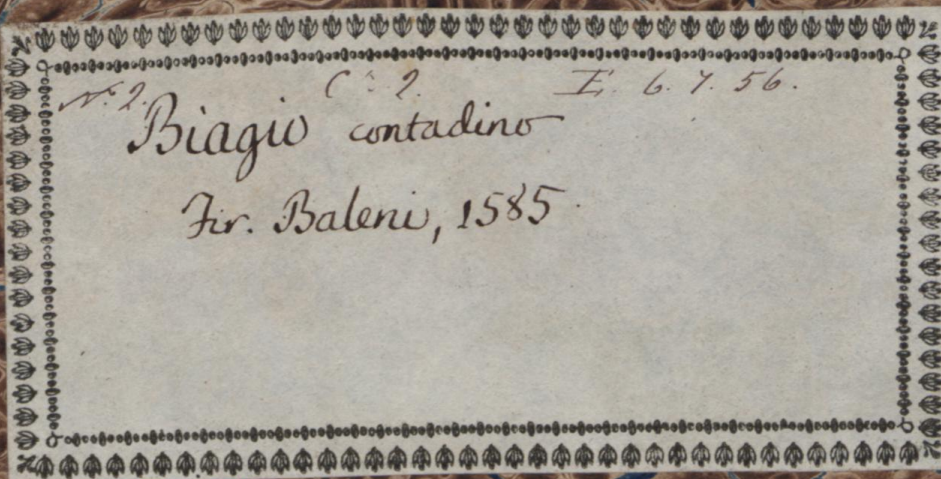 N.º 2. C.ª 2. E. 6. 7. 56.
Biagio contadino
Fir. Baleni, 1585.